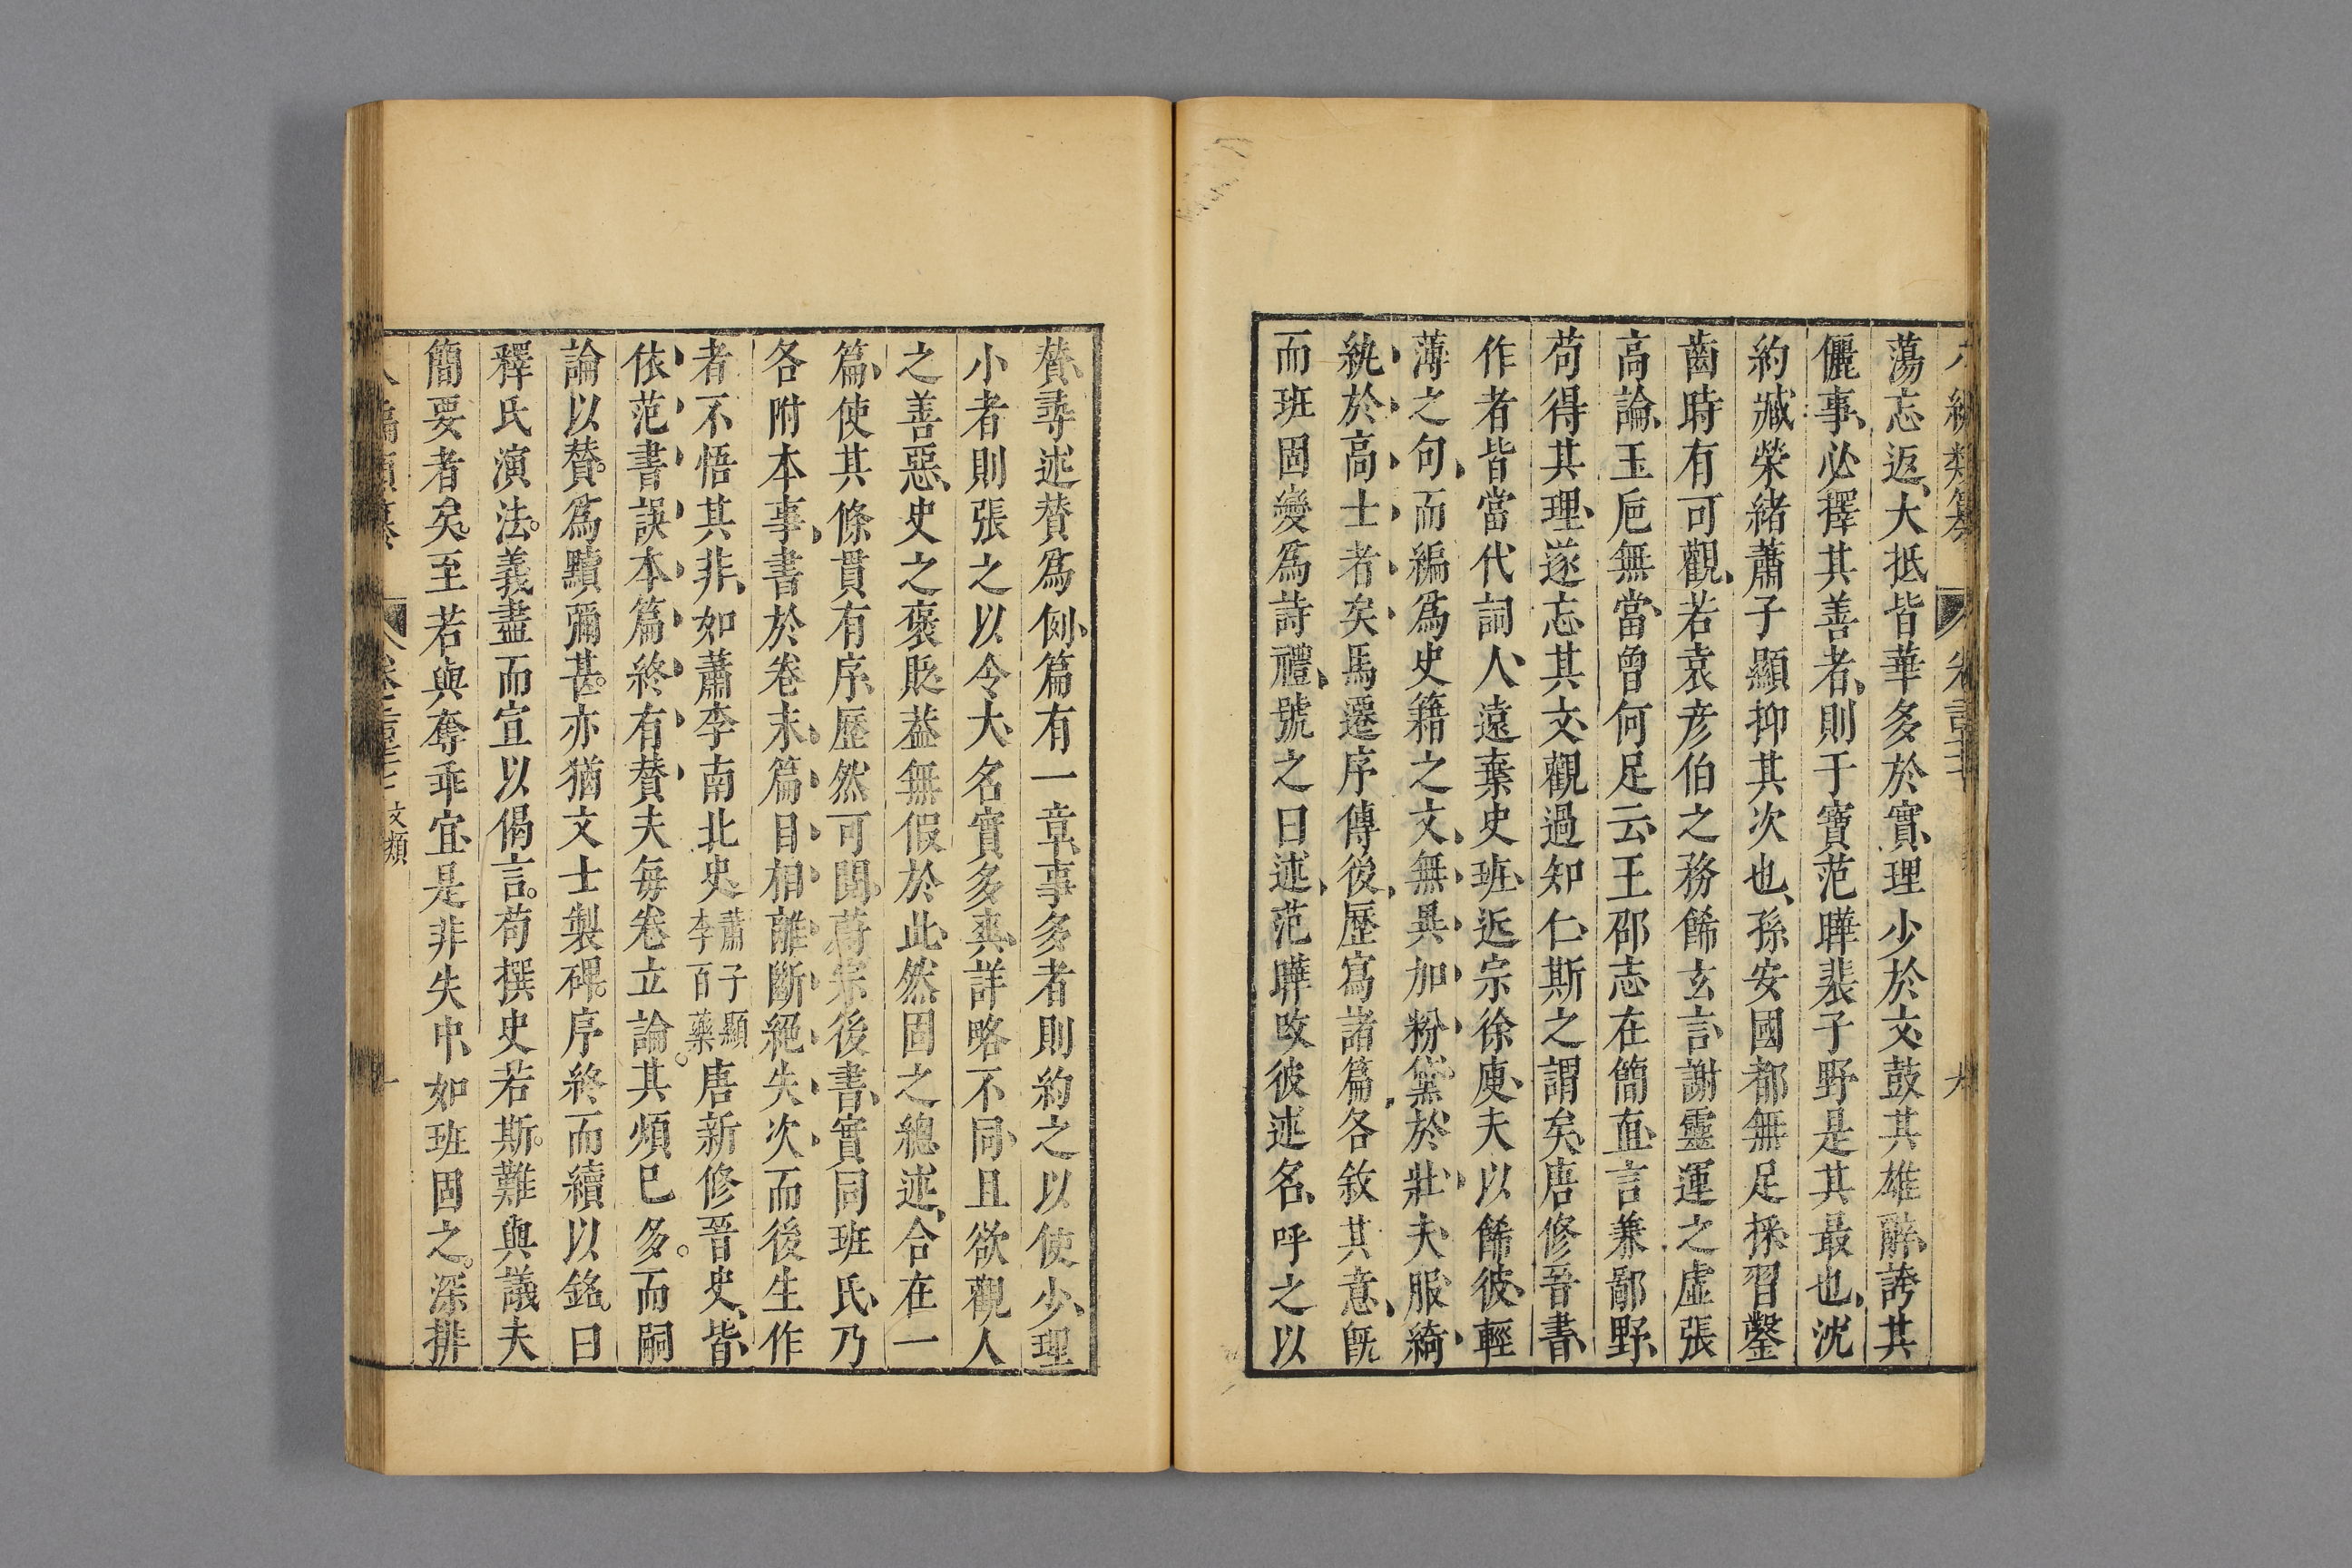 蕩忘返、大抵皆華多於實、理少於文、鼓其雄辭、誇其
儷事、必擇其善者、則于寶范曄裴子野是其最也、沈
約臧榮緒蕭子顯抑其次也、孫安國都無足採、習鑿
齒時有可觀、若袁彥伯之務餙玄言、謝靈運之虛張
高論、玉巵無當、曾何足云、王邵志在簡直、言兼鄙野、
苟得其理、遂忘其文、觀過知仁、斯之謂矣、唐修晉書、
作者皆當代詞人、遠棄史班、近宗徐庾、夫以餙彼輕
薄之句、而編爲史籍之文、無異加粉黛於壯夫、服綺
紈於高士者矣、馬遷序傳後、歷寫諸篇各敘其意、旣
而班固變爲詩禮、號之曰述、范曄改彼述名、呼之以
贊、尋述贊爲例、篇有一章、事多者則約之以使少、理
小者則張之以令大、名實多爽、詳略不同、且欲觀人
之善惡、史之褒貶、葢無假於此、然固之總述、合在一
篇、使其條貫有序、歷然可閱、蔚宗後書、實同班氏、乃
各附本事、書於卷末、篇目相離、斷絕失次、而後生作
者不悟其非、如蕭李南北史、蕭子顯李百藥唐新修晉史、皆
依范書誤本、篇終有贊、夫每卷立論。其煩已多。而嗣
論以贊。爲黷彌甚。亦猶文士製碑。序終而續以銘。曰
釋氏演法。義盡而宣以偈言。苟撰史若斯。難與議夫
簡要者矣。至若與奪乖宜、是非失中、如班固之。深排
卷 文類